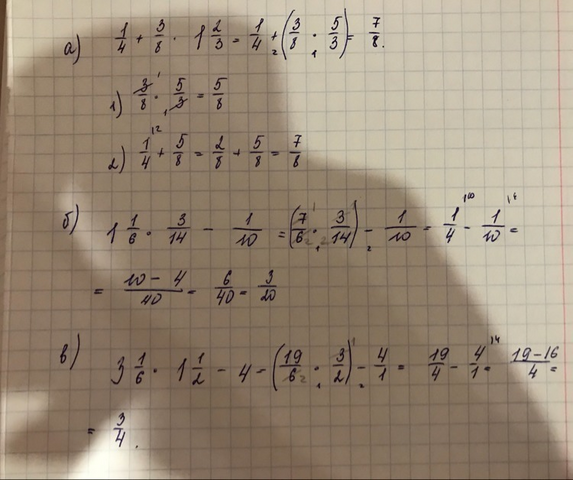 а) 1/4 + 3/8 · 1 2/3 = 1/4 + (3/8 · 5/3) = 7/8.
1) 3/8 · 5/3 = 5/8
2) 1/4 + 5/8 = 2/8 + 5/8 = 7/8
б) 1 1/6 · 3/14 - 1/10 = (7/6 · 3/14) - 1/10 = 1/4 - 1/10 =
= 10-4/40 = 6/40 = 3/20
в) 3 1/6 · 1 1/2 - 4 = (19/6 · 3/2) - 4/1 = 19/4 - 4/1 = 19-16/4 =
= 3/4.